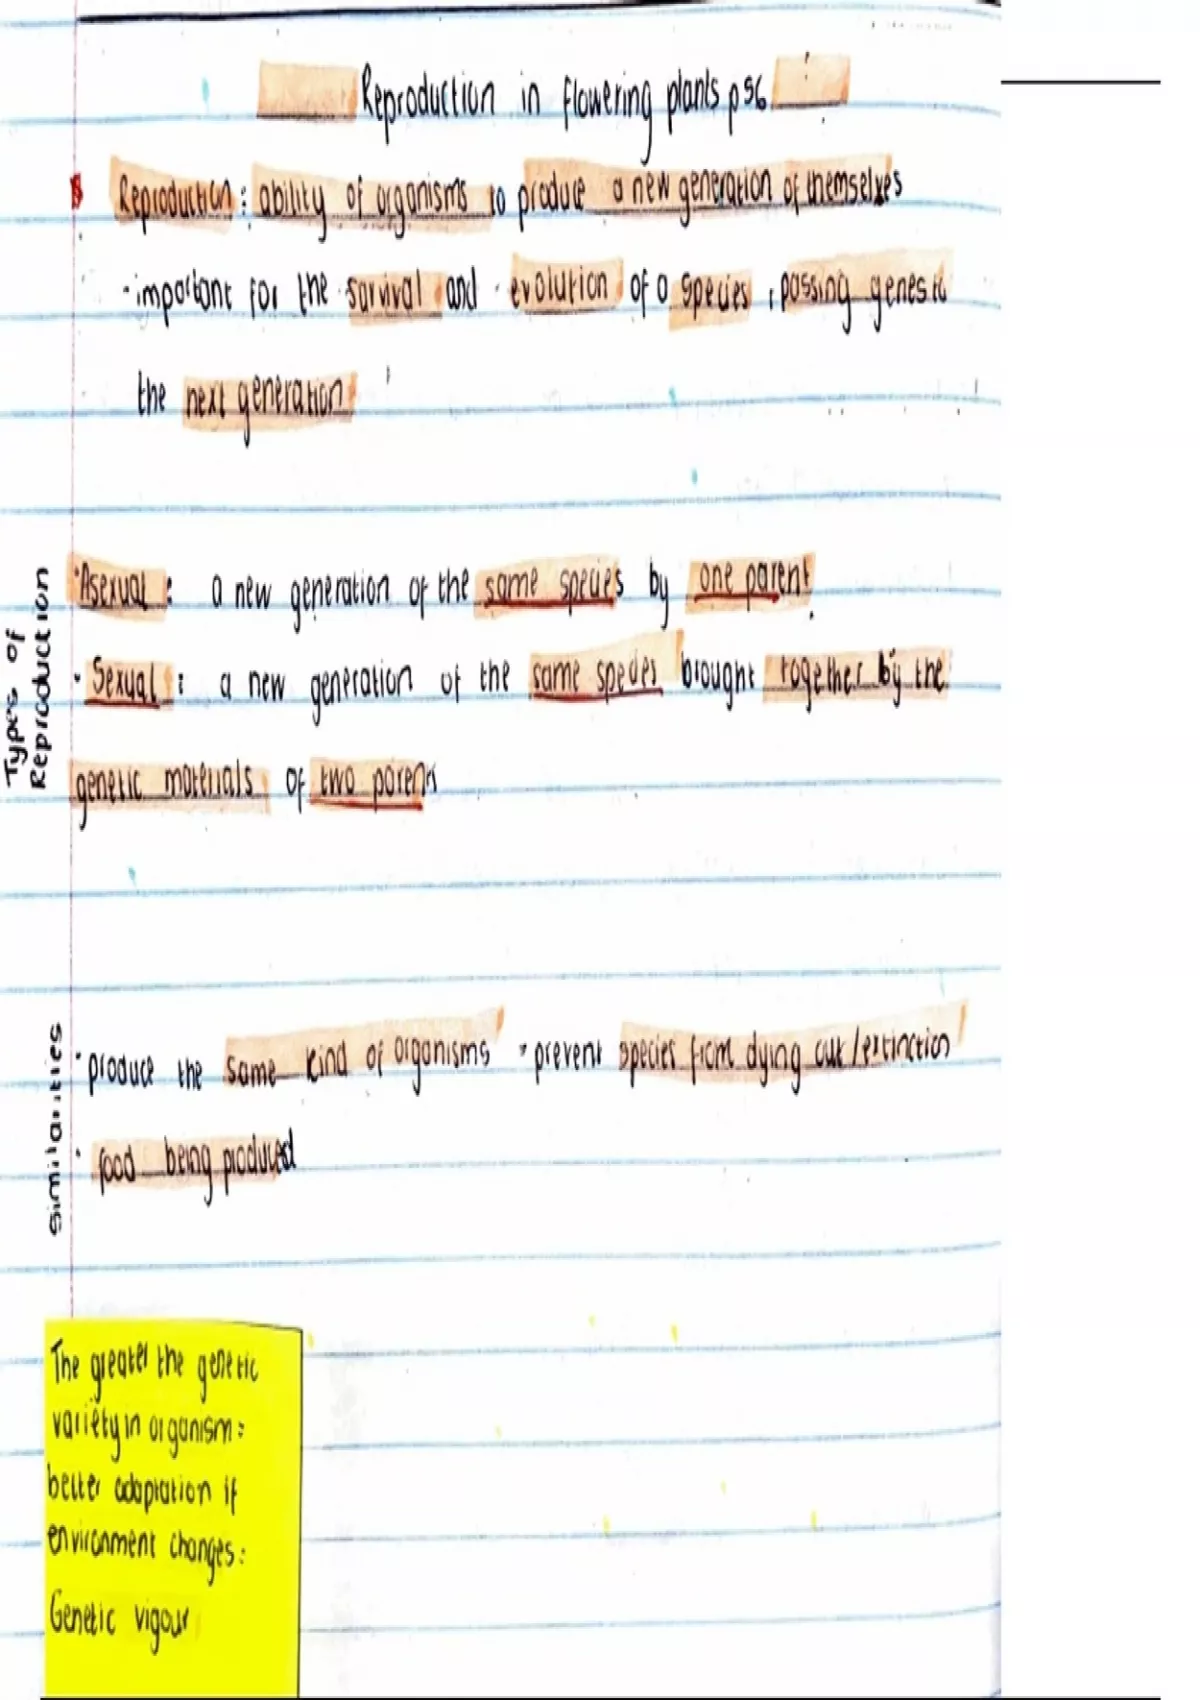 Reproduction in flowering plants p56
Reproduction : ability of organisms to produce a new generation of themselves
· important for the survival and evolution of a species , passing genes to
the next generation
Types of
Reproduction
· Asexual : a new generation of the same species by one parent
· Sexual : a new generation of the same species brought together by the
genetic materials of two parents
Similarities
· produce the same kind of organisms · prevent species from dying out /extinction
· food being produced
The greater the genetic
variety in organism :
better adaptation if
environment changes :
Genetic vigour